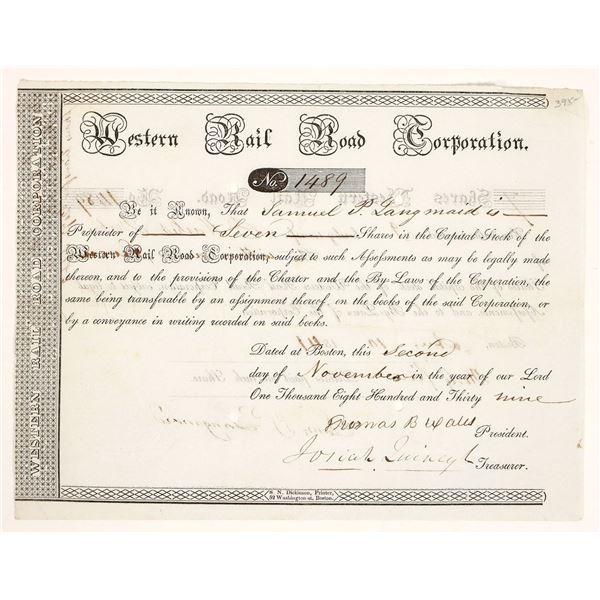 395-
WESTERN RAIL ROAD CORPORATION
Western Rail Road Corporation.
No. 1489
Be it Known, That Samuel P. Langmaid is
Proprietor of Seven Shares in the Capital Stock of the
Western Rail Road Corporation, subject to such Assessments as may be legally made
thereon, and to the provisions of the Charter and the By-Laws of the Corporation, the
same being transferable by an assignment thereof, on the books of the said Corporation, or
by a conveyance in writing recorded on said books.
Dated at Boston, this Second
day of November in the year of our Lord
One Thousand Eight Hundred and Thirty nine
Thomas B Wales
President.
Josiah Quincy Jr
Treasurer.
S. N. Dickinson, Printer,
52 Washington-st. Boston.